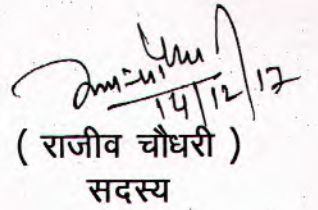 14/12/17
( राजीव चौधरी )
सदस्य